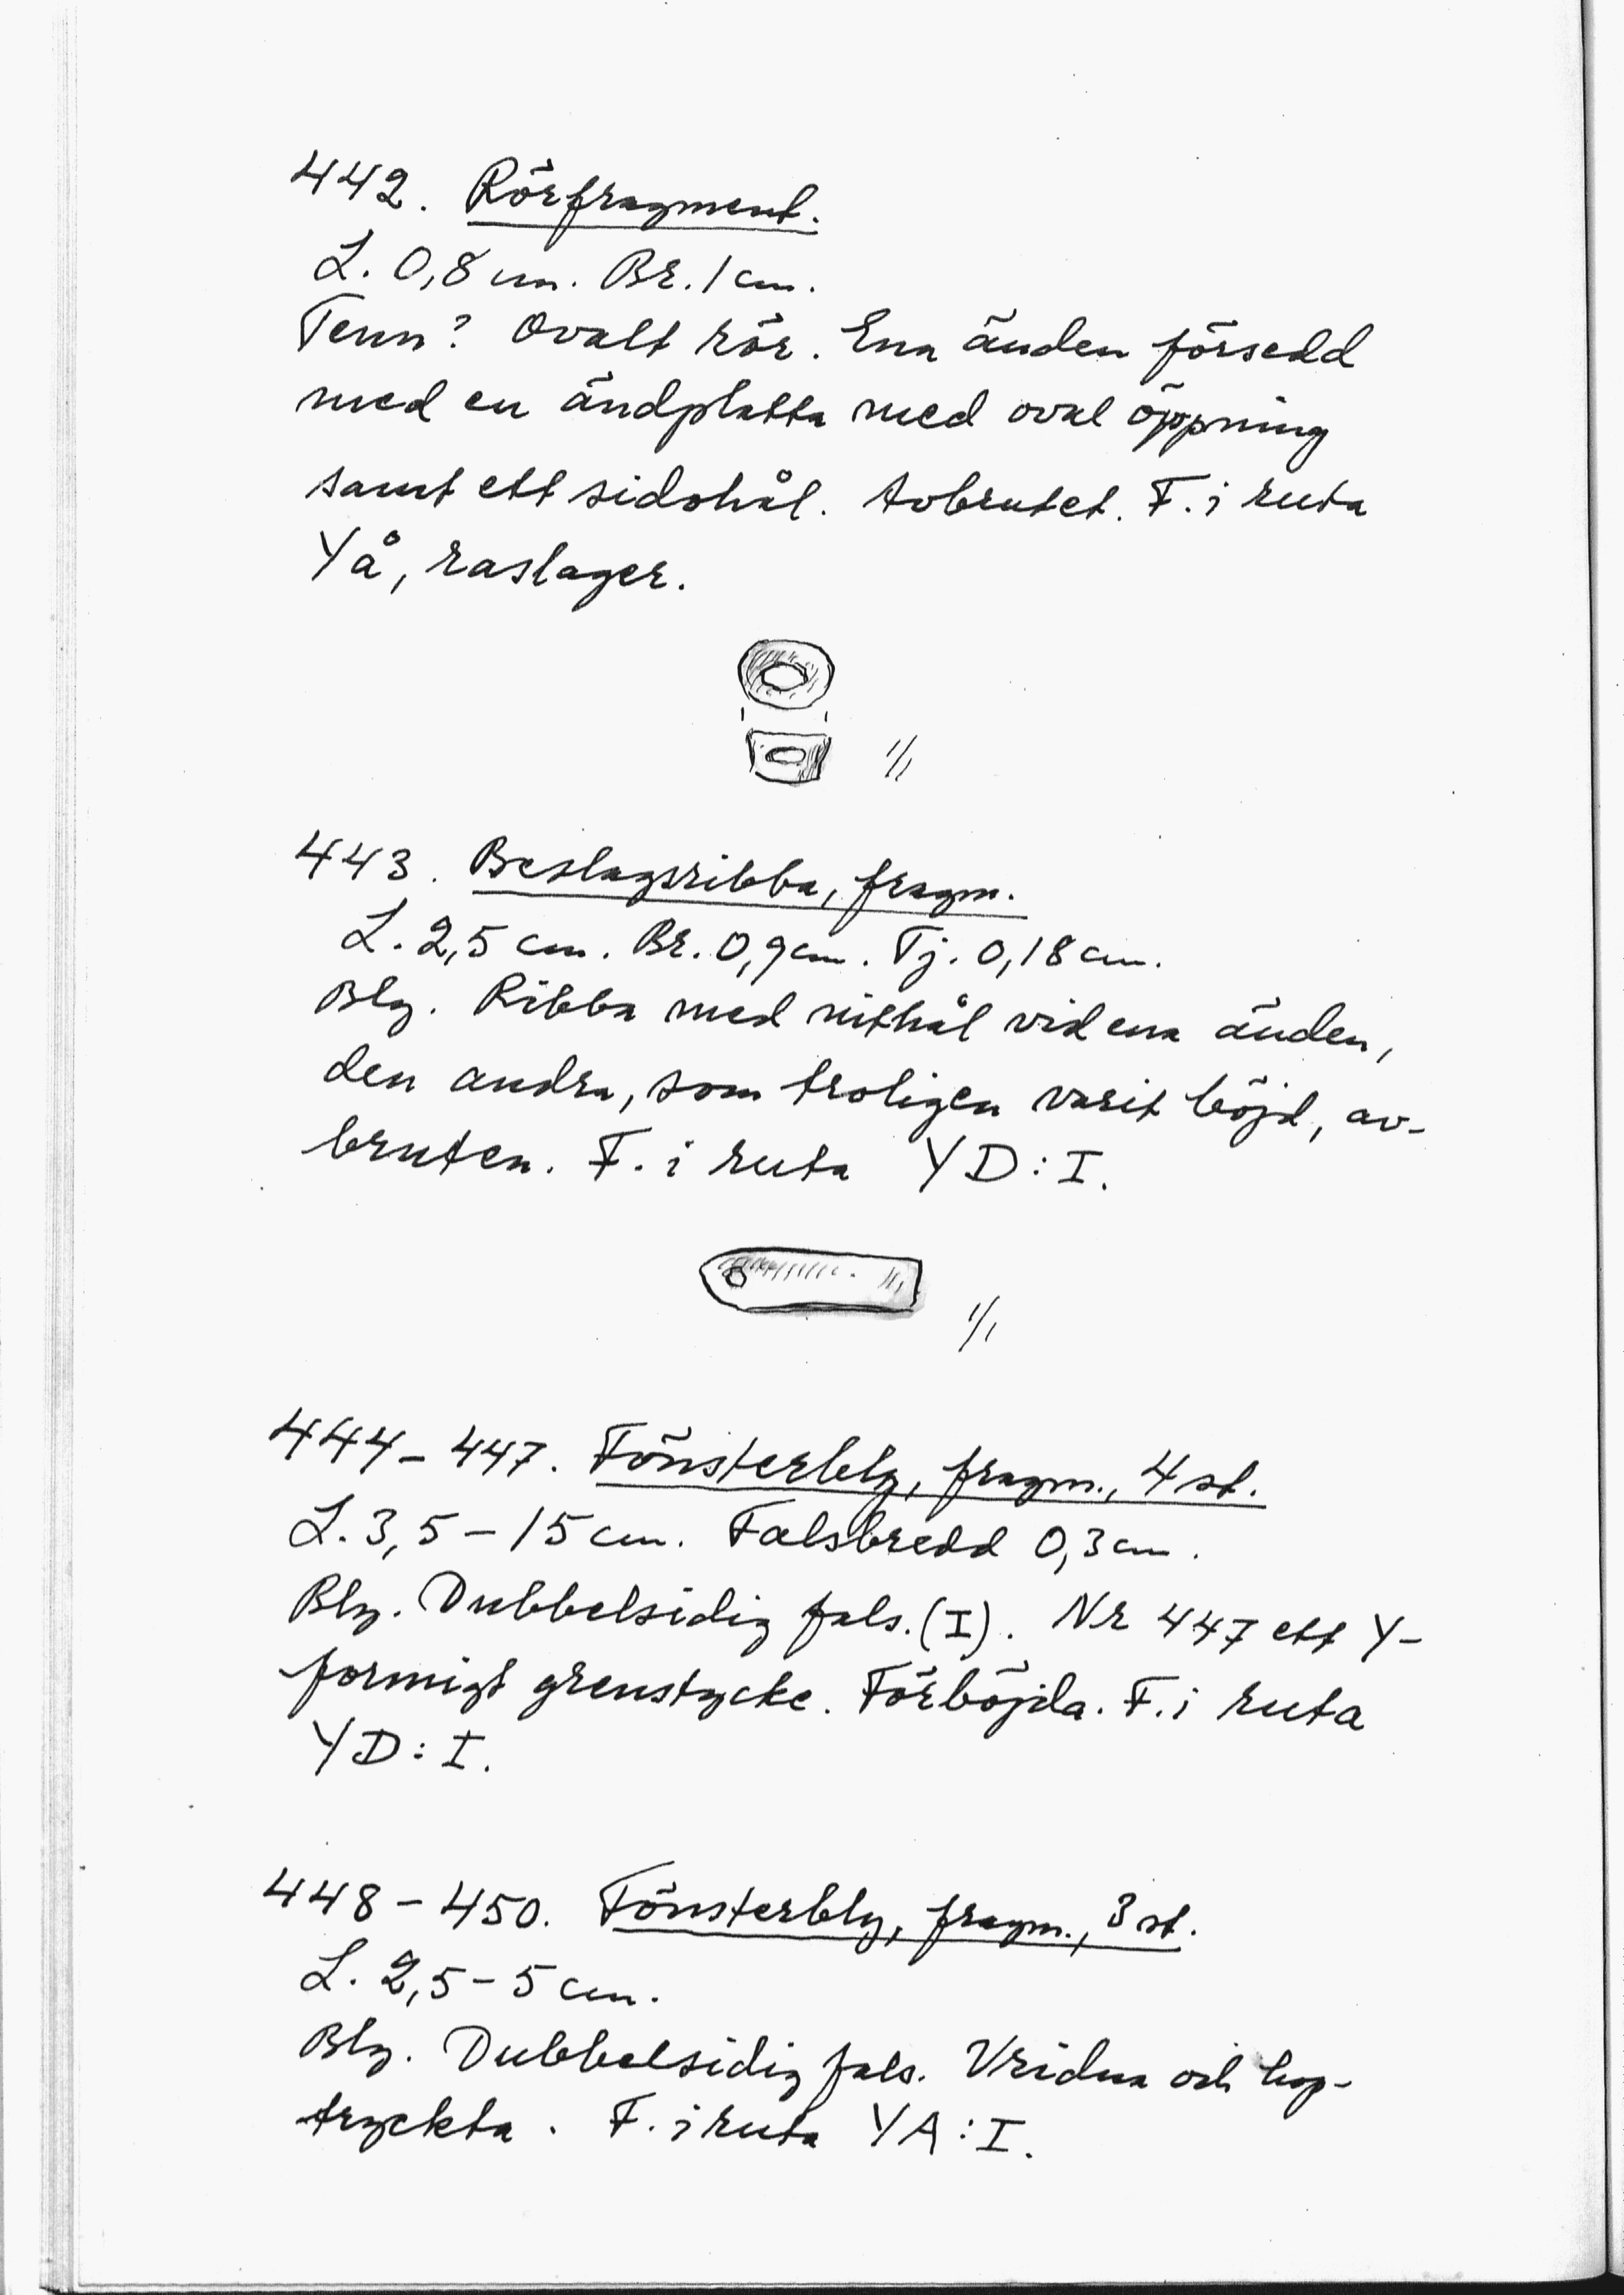 442. Rörfragment.
L. 0,8 cm. Br. 1 cm.
Tenn? Ovalt rör. Ena änden försedd
med en ändplatta med oval öppning
samt ett sidohål. Avbrutet. F. i ruta
YÅ, raslager.
1/1
443. Beslagsribba, fragm.
L. 2,5 cm. Br. 0,9 cm. Tj. 0,18 cm.
Bly. Ribba med nithål vid ena änden,
den andra, som troligen varit böjd, av-
bruten. F. i ruta YD:I.
1/1
444-447. Fönsterbly, fragm., 4 st.
L. 3,5-15 cm. Falsbredd 0,3 cm.
Bly. Dubbelsidig fals. (I). Nr 447 ett Y-
formigt grenstycke. Förböjda. F. i ruta
YD:I.
448-450. Fönsterbly, fragm., 3 st.
L. 2,5-5 cm.
Bly. Dubbelsidig fals. Vridna och hop-
tryckta. F. i ruta YA:I.